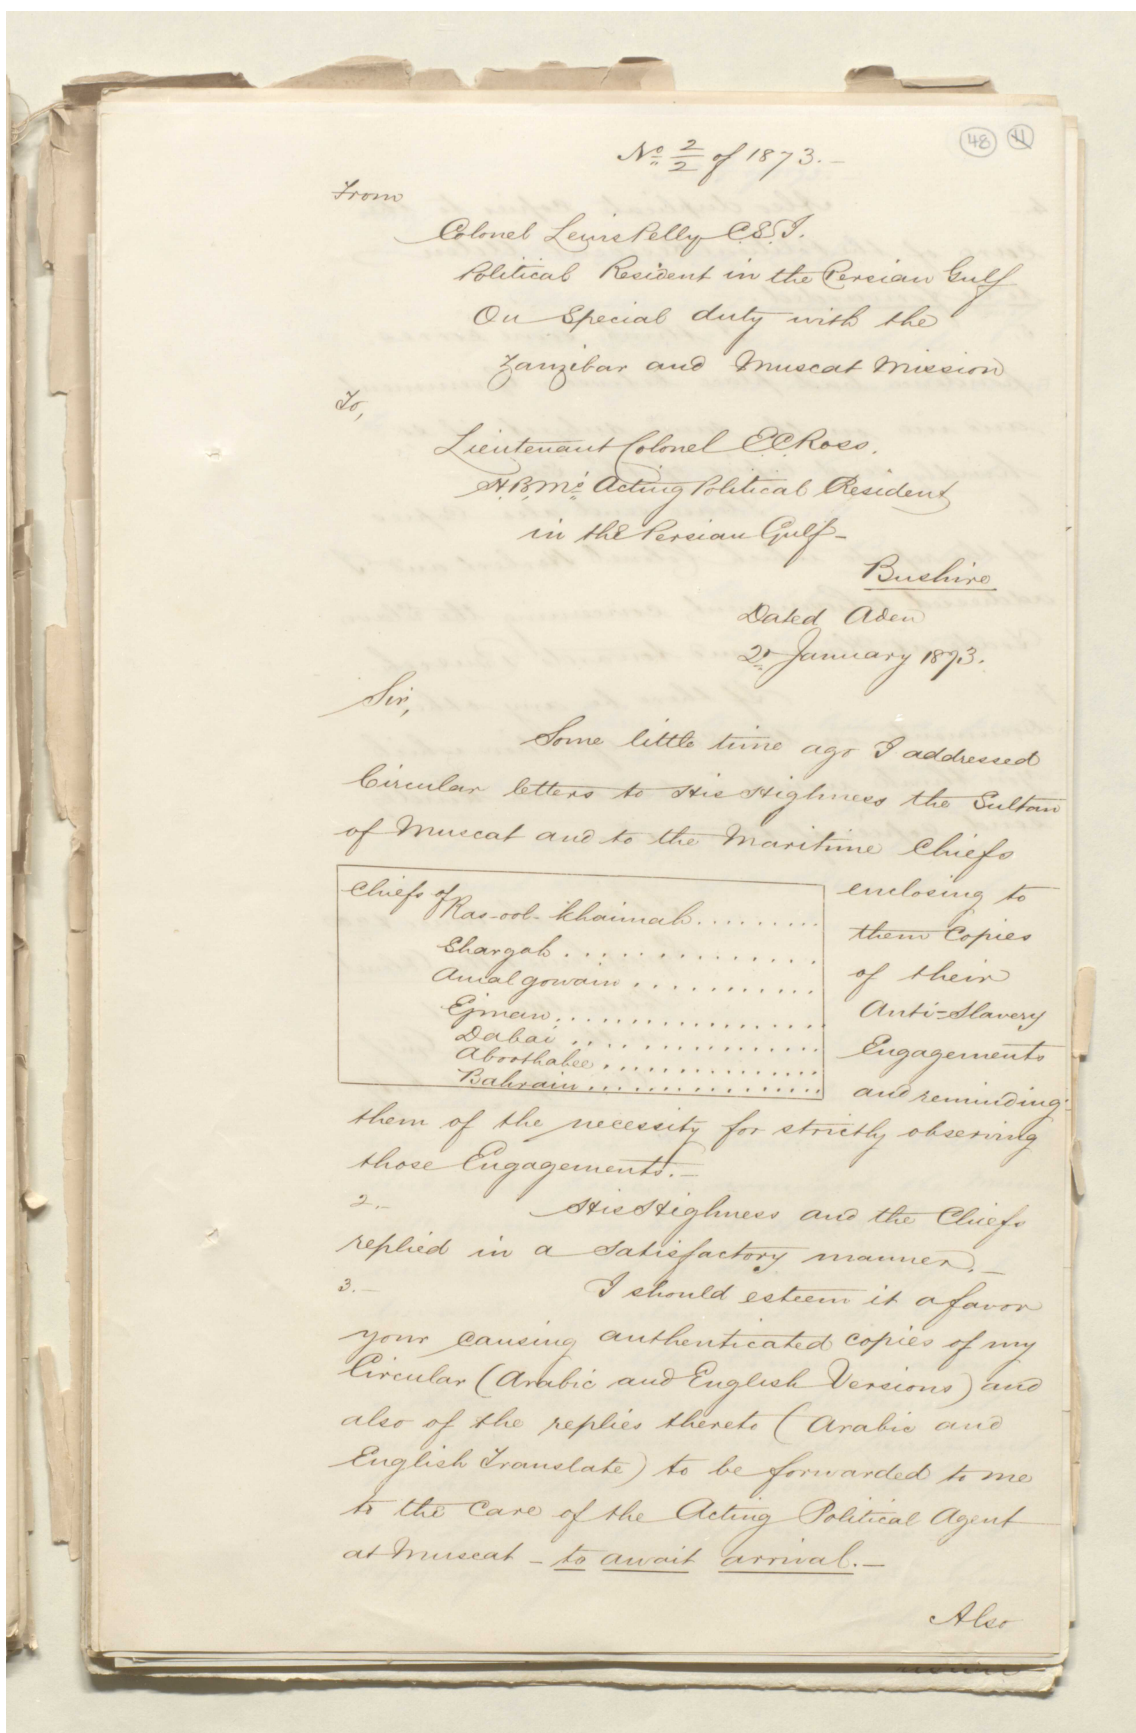 48 11
No 2/2 of 1873.-
From
Colonel Lewis Pelly C.S.I.
Political Resident in the Persian Gulf
On Special duty with the
Zanzibar and Muscat Mission
To,
Lieutenant Colonel E.C. Ross.
H.B.M's Acting Political Resident
in the Persian Gulf-
Bushire
Dated Aden
2d January 1873.
Sir,
Some little time ago I addressed
Circular letters to His Highness the Sultan
of Muscat and to the Maritime Chiefs
Chiefs of
Ras-ool-Khaimah.........
Shargah..............
Amalgowain...........
Ejman................
Dabai...............
Aboothabee.............
Bahrain...............
enclosing to
them Copies
of their
Anti-Slavery
Engagements
and reminding
them of the necessity for strictly observing
those Engagements.-
2.- His Highness and the Chiefs
replied in a satisfactory manner.-
3.- I should esteem it a favor
your causing authenticated copies of my
Circular (Arabic and English Versions) and
also of the replies thereto (Arabic and
English Translate) to be forwarded to me
to the care of the Acting Political Agent
at Muscat - to await arrival.-
Also